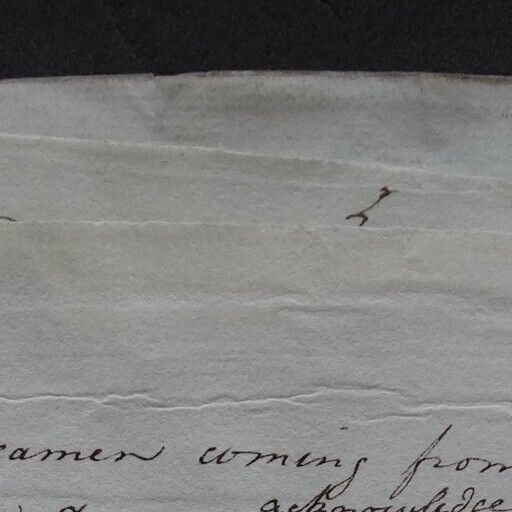 I
eamen coming from
a acknowledge